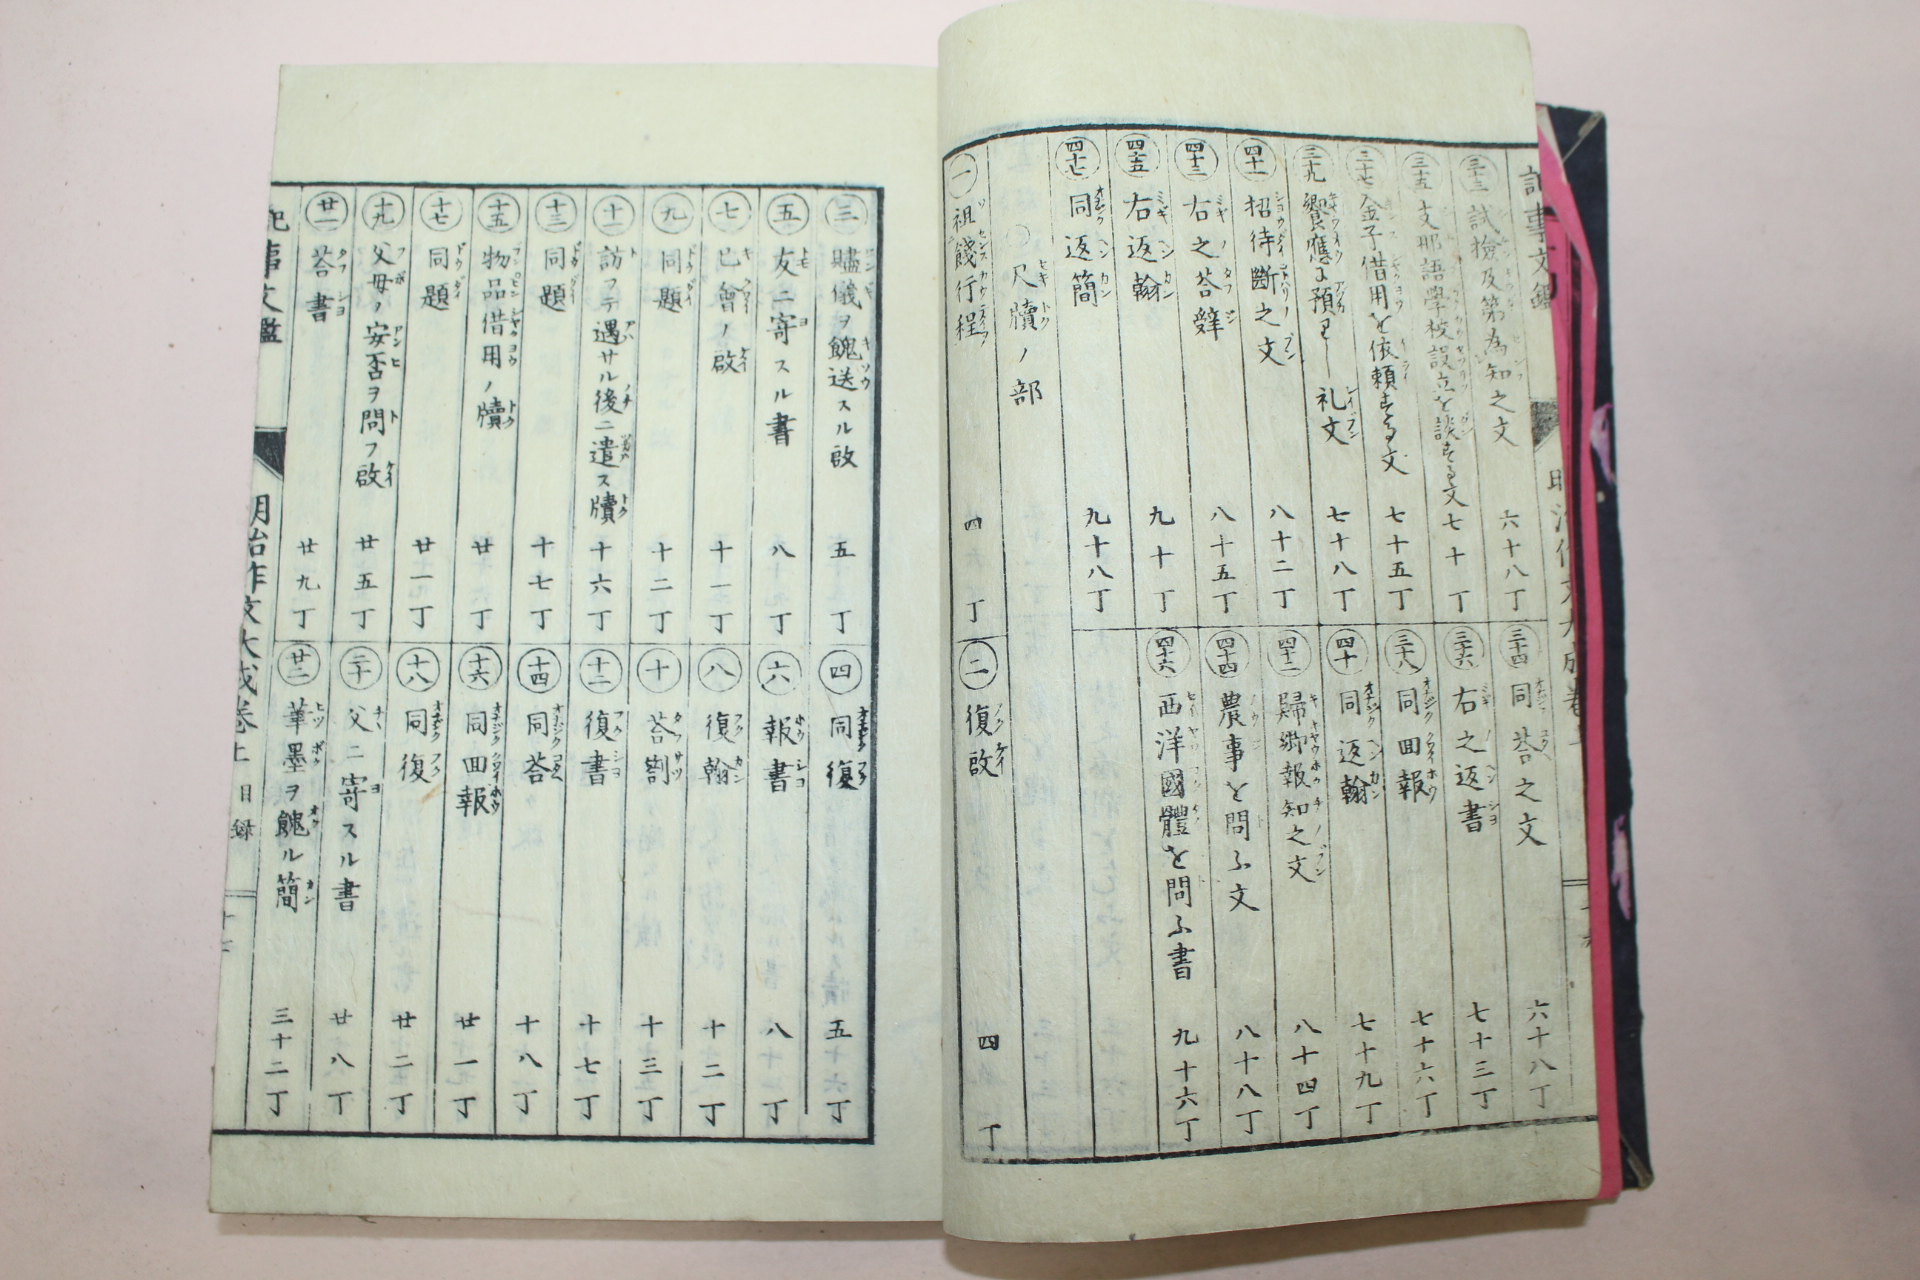 記事文鑑
明治作文大成卷上
三十三 試撿及第為知之文 六十八丁
三十四 同答之文 六十八丁
三十五 支那語学校設立を談する文 七十丁
三十六 右之返書 七十三丁
三十七 金子借用を依頼する文 七十五丁
三十八 同回報 七十六丁
三十九 饗應に預りし礼文 七十八丁
四十 同返翰 七十九丁
四十一 招待断之文 八十二丁
四十二 歸郷報知之文 八十四丁
四十三 右之荅辤 八十五丁
四十四 農事を問ふ文 八十八丁
四十五 右返翰 九十丁
四十六 西洋國體を問ふ書 九十六丁
四十七 同返簡 九十八丁
〇尺牘ノ部
一 祖餞行程 四丁
二 復啟 四丁
三 贐儀ヲ餽送スル啟 五丁
四 同復 五丁
五 友ニ寄スル書 八丁
六 報書 八丁
七 已會ノ啟 十一丁
八 復翰 十二丁
九 同題 十二丁
十 荅劄 十三丁
十一 訪フテ遇サル後ニ遣ス牘 十六丁
十二 復書 十七丁
十三 同題 十七丁
十四 同荅 十八丁
十五 物品借用ノ牘 廿丁
十六 同回報 廿一丁
十七 同題 廿一丁
十八 同復 廿二丁
十九 父母ノ安否ヲ問フ啟 廿五丁
二十 父ニ寄スル書 廿八丁
廿一 荅書 廿九丁
廿二 華墨ヲ餽ル簡 三十二丁
記事文鑑
明治作文大成卷上 目録